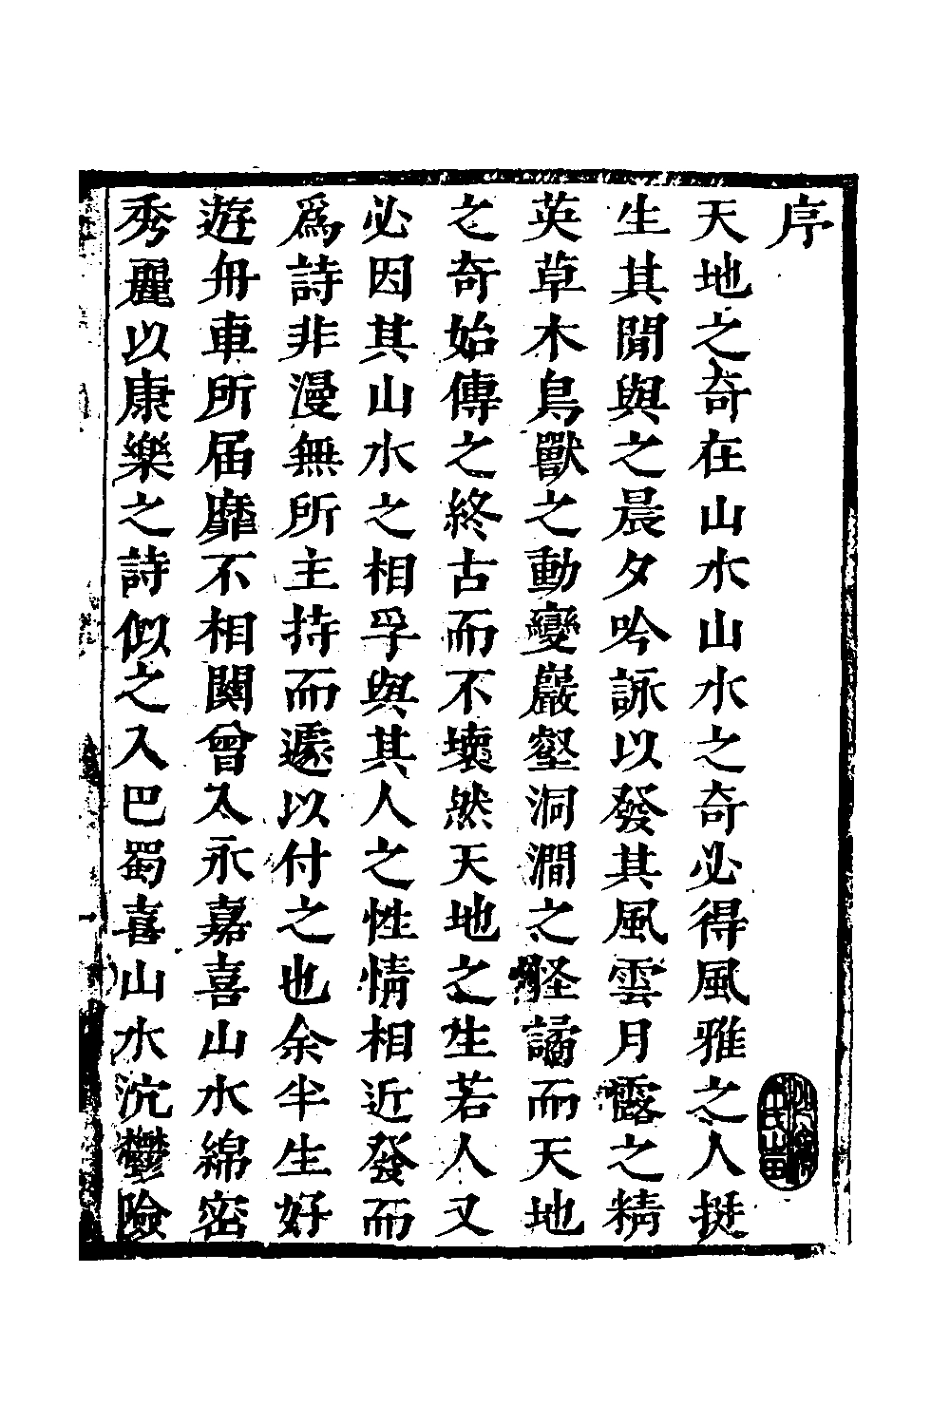 序
天地之奇在山水山水之奇必得風雅之人挺
生其閒與之晨夕吟詠以發其風雲月露之精
英草木鳥獸之動變巖壑洞澗之怪譎而天地
之奇始傳之終古而不壞然天地之生若人又
必因其山水之相孚與其人之性情相近發而
爲詩非漫無所主持而遽以付之也余半生好
遊舟車所届靡不相関曾入永嘉喜山水綿密
秀麗以康樂之詩似之入巴蜀喜山水沉鬱險